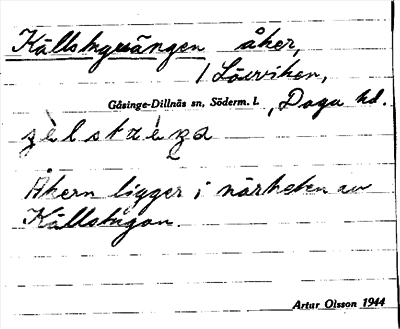 Källstugeängen åker,
/ Lövviken,
Gåsinge-Dillnäs sn, Söderm. l. , Daga hd.
Åkern ligger i närheten av
Källstugan.
Artur Olsson 1944